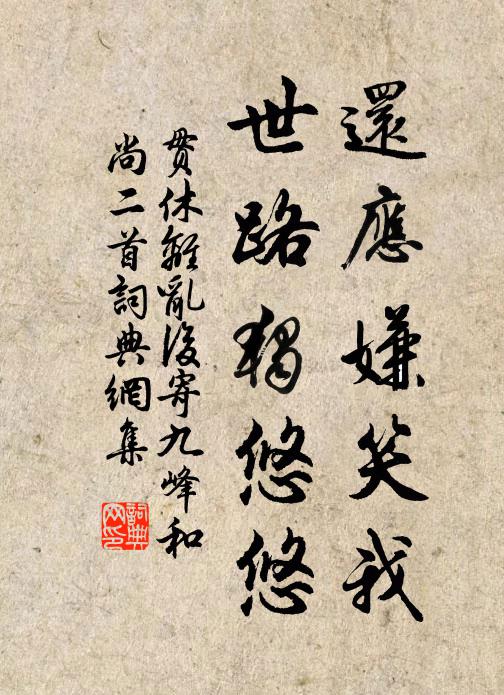 還應嫌笑我
世路獨悠悠
貫休離亂後寄九峰和
尚二首詞典網集
詞典
网印